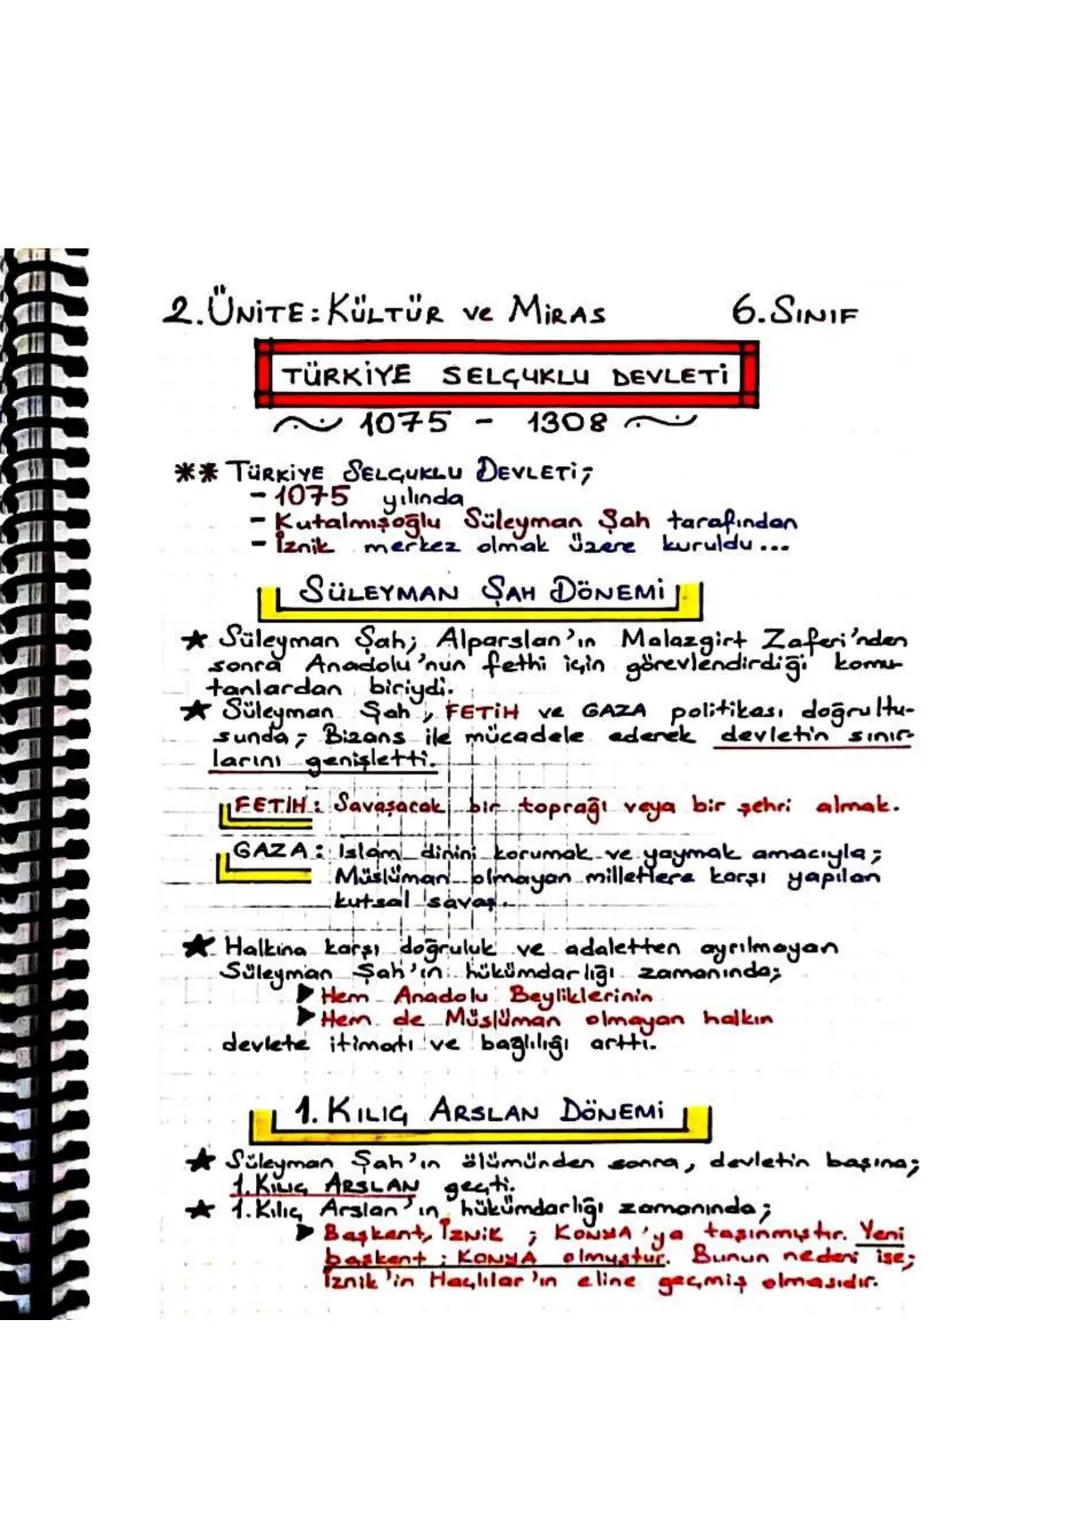 2.ÜNİTE: KÜLTÜR ve MİRAS 6.SINIF
TÜRKİYE SELÇUKLU DEVLETİ
1075 - 1308
** TÜRKİYE SELÇUKLU DEVLETİ;
- 1075 yılında
- Kutalmışoğlu Süleyman Şah tarafından
- İznik merkez olmak üzere kuruldu...
SÜLEYMAN ŞAH DÖNEMİ
★ Süleyman Şah; Alparslan'ın Malazgirt Zaferi'nden
sonra Anadolu'nun fethi için görevlendirdiği komu-
tanlardan biriydi.
★ Süleyman Şah, FETİH ve GAZA politikası doğrultu-
sunda; Bizans ile mücadele ederek devletin sınır-
larını genişletti.
FETİH: Savaşacak bir toprağı veya bir şehri almak.
GAZA: İslam dinini korumak ve yaymak amacıyla;
Müslüman olmayan milletlere karşı yapılan
kutsal savaş.
★ Halkına karşı doğruluk ve adaletten ayrılmayan
Süleyman Şah'ın hükümdarlığı zamanında;
▶ Hem Anadolu Beyliklerinin
▶ Hem de Müslüman olmayan halkın
devlete itimatı ve bağlılığı arttı.
1. KILIÇ ARSLAN DÖNEMİ
★ Süleyman Şah'ın ölümünden sonra, devletin başına;
1. KILIÇ ARSLAN geçti.
★ 1. Kılıç Arslan'ın hükümdarlığı zamanında;
▶ Başkent, İZNİK; KONYA'ya taşınmıştır. Yeni
başkent; KONYA olmuştur. Bunun nedeni ise;
İznik'in Haçlılar'ın eline geçmiş olmasıdır.